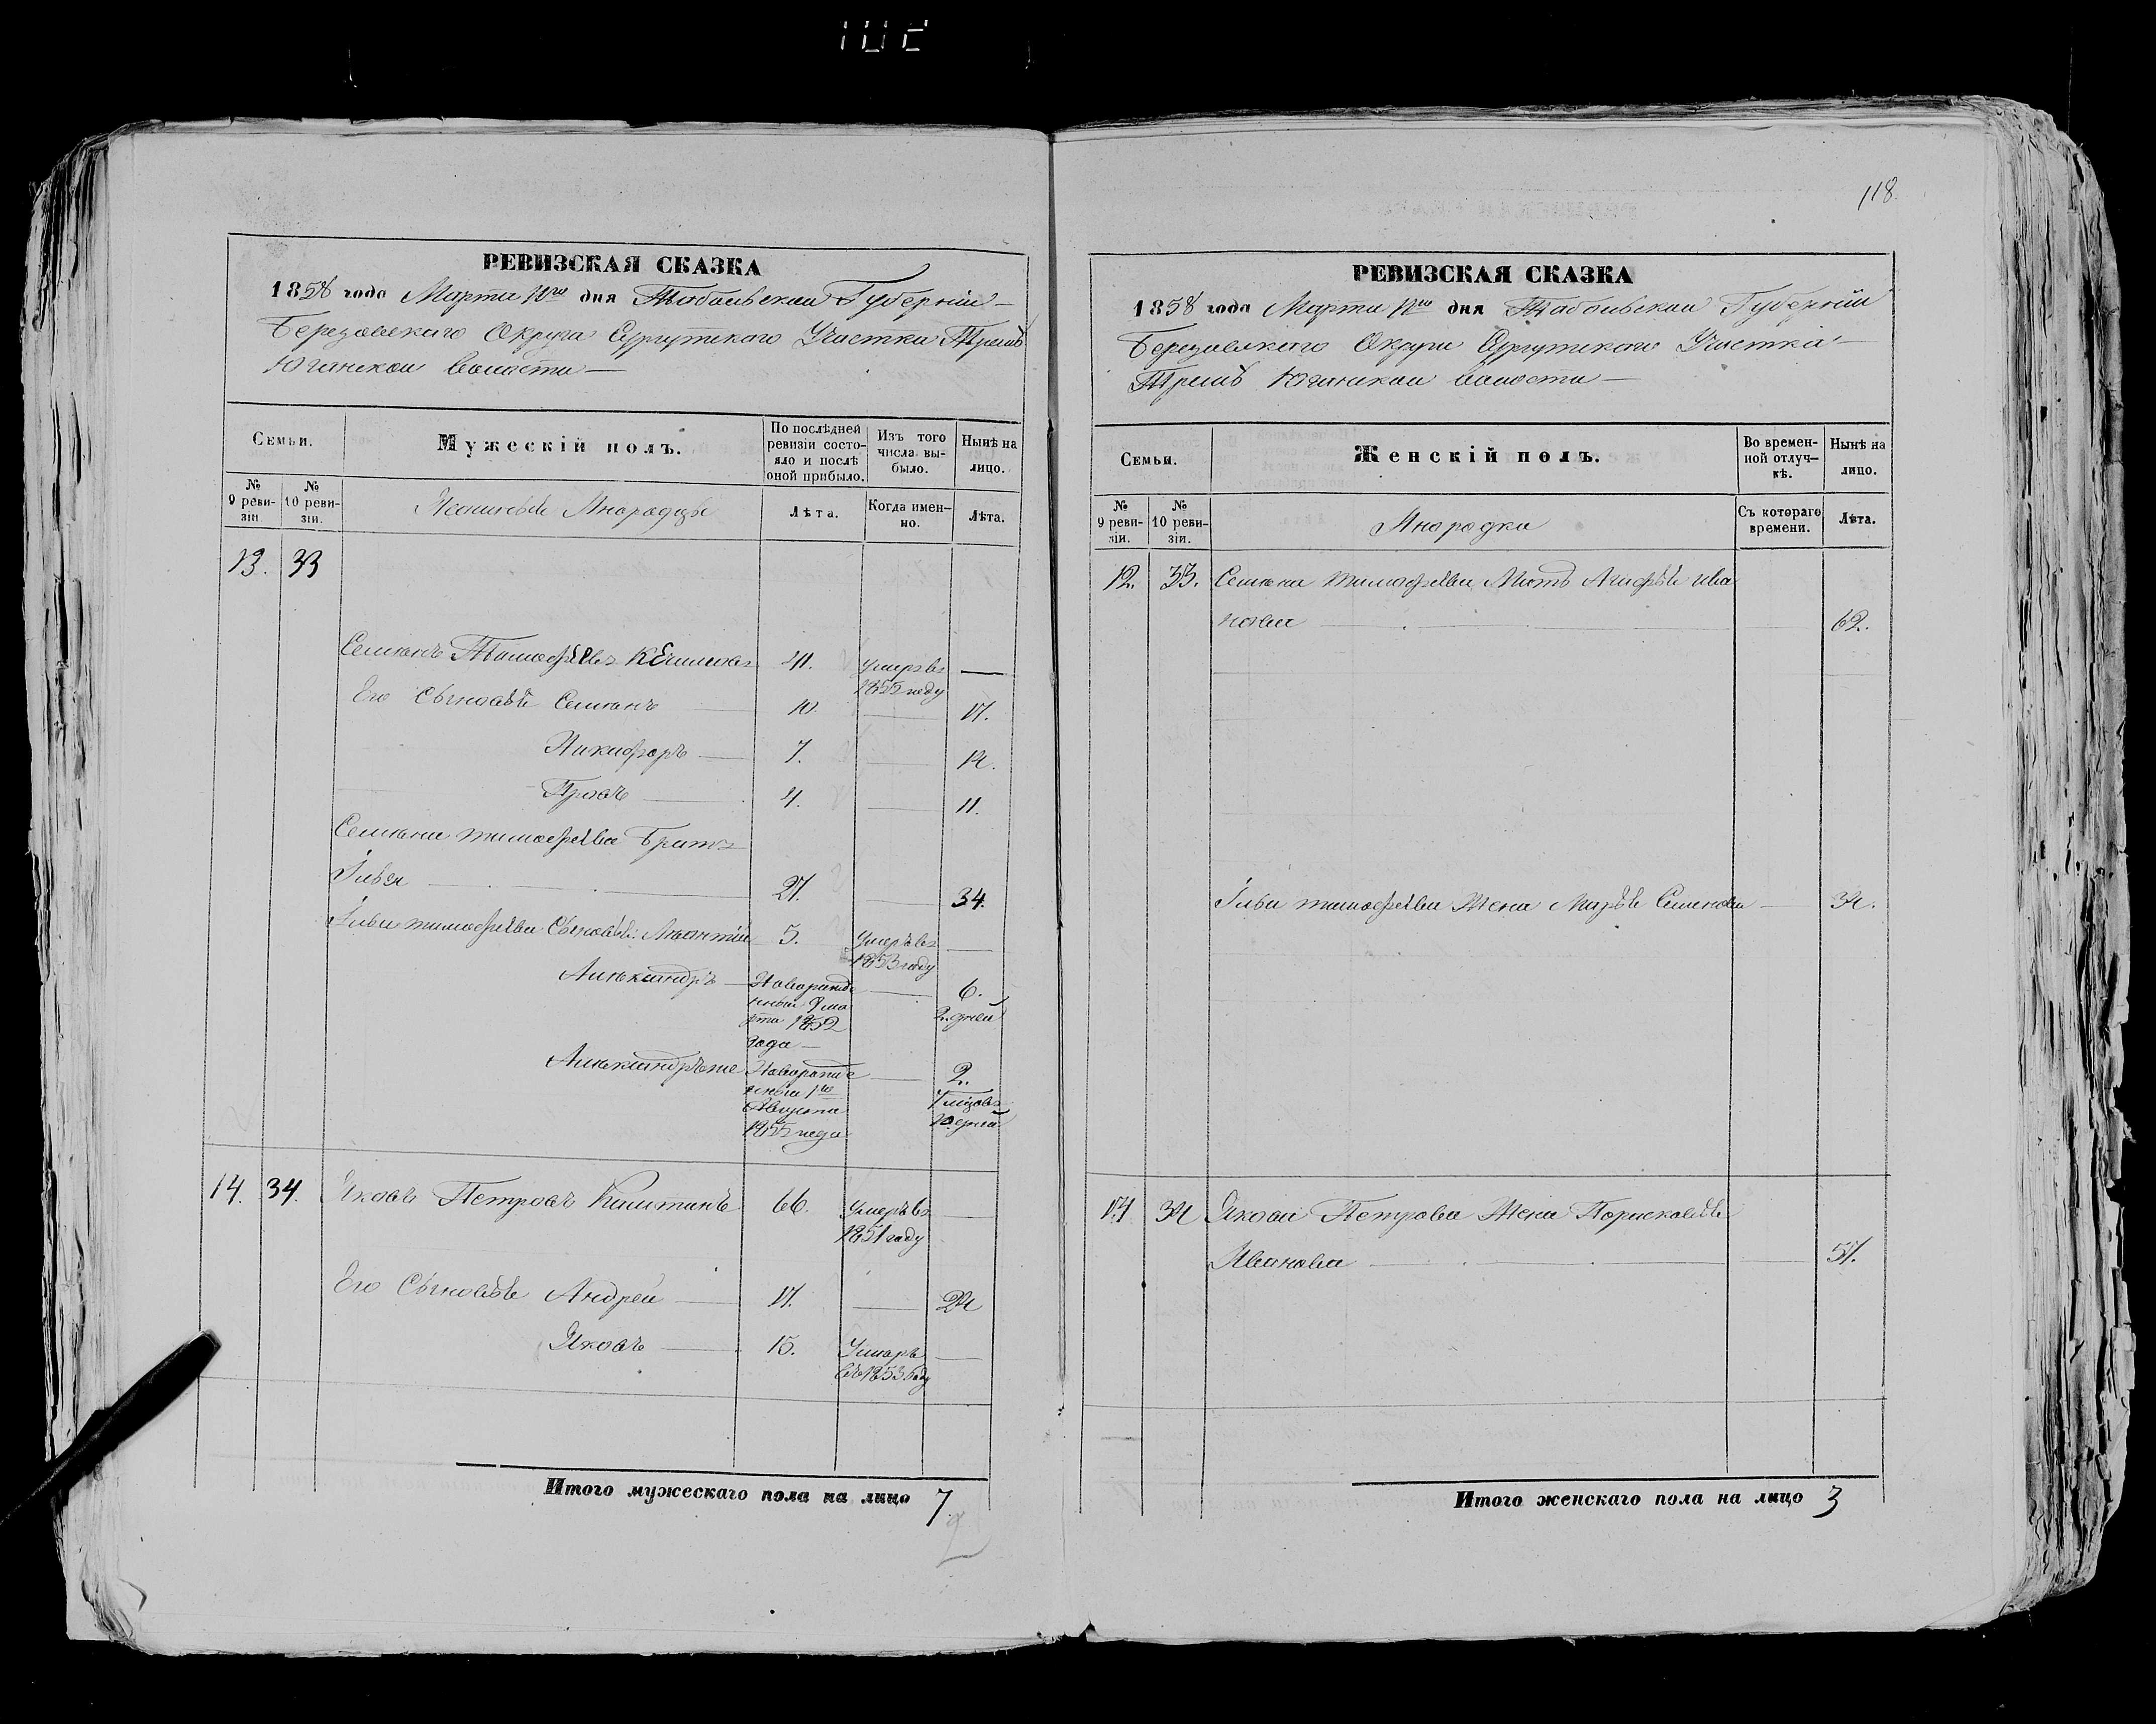 118.
РЕВИЗСКАЯ СКАЗКА
1858 года Марта 10го дня Тобольской Губерніи
Березовского Округа Сургутского Участка Трехъ
Юганской волости
Семьи.
Мужескій полъ.
По послѣдней ревизіи состояло и послѣ оной прибыло.
Изъ того числа выбыло.
Нынѣ на лицо.
№ 9 ревизіи.
№ 10 ревизіи.
Инородцы
Лѣта.
Когда именно.
Лѣта.
13. 33
Семенъ Тимофѣевъ 41. умеръ въ 1855 году —
Его Сыновья Семенъ 10. 17.
Никифоръ 7. 14.
Провъ 4. 11.
Семена тимофѣева Братъ
Илья 27. 34.
Ильи тимофѣева Сыновья: 5. Умеръ въ 1853 году
Александръ Новорожденный 8 марта 1852 года 6. 2. дней
Александръ же Новорожденный 1го Августа 1855 года 2. 7 мцовъ 10 дней
14. 34. Яковъ Петровъ 66. Умеръ въ 1851 году
Его Сыновья Андрей 17. 24
Яковъ 15. Умеръ въ 1853 году
Итого мужескаго пола на лицо 7
РЕВИЗСКАЯ СКАЗКА
1858 года Марта 10го дня Тобольской Губерніи
Березовского Округа Сургутского Участка
Трехъ Юганской волости
Семьи.
Женскій полъ.
Во временной отлучкѣ.
Нынѣ на лицо.
№ 9 ревизіи.
№ 10 ревизіи.
Инородки
Съ котораго времени.
Лѣта.
33. Семена тимофѣева Мать Ива
нова 62.
Ильи тимофѣева Жена Марья Семенова 34.
14 34 Якова Петрова Жена
Иванова 57.
Итого женскаго пола на лицо 3